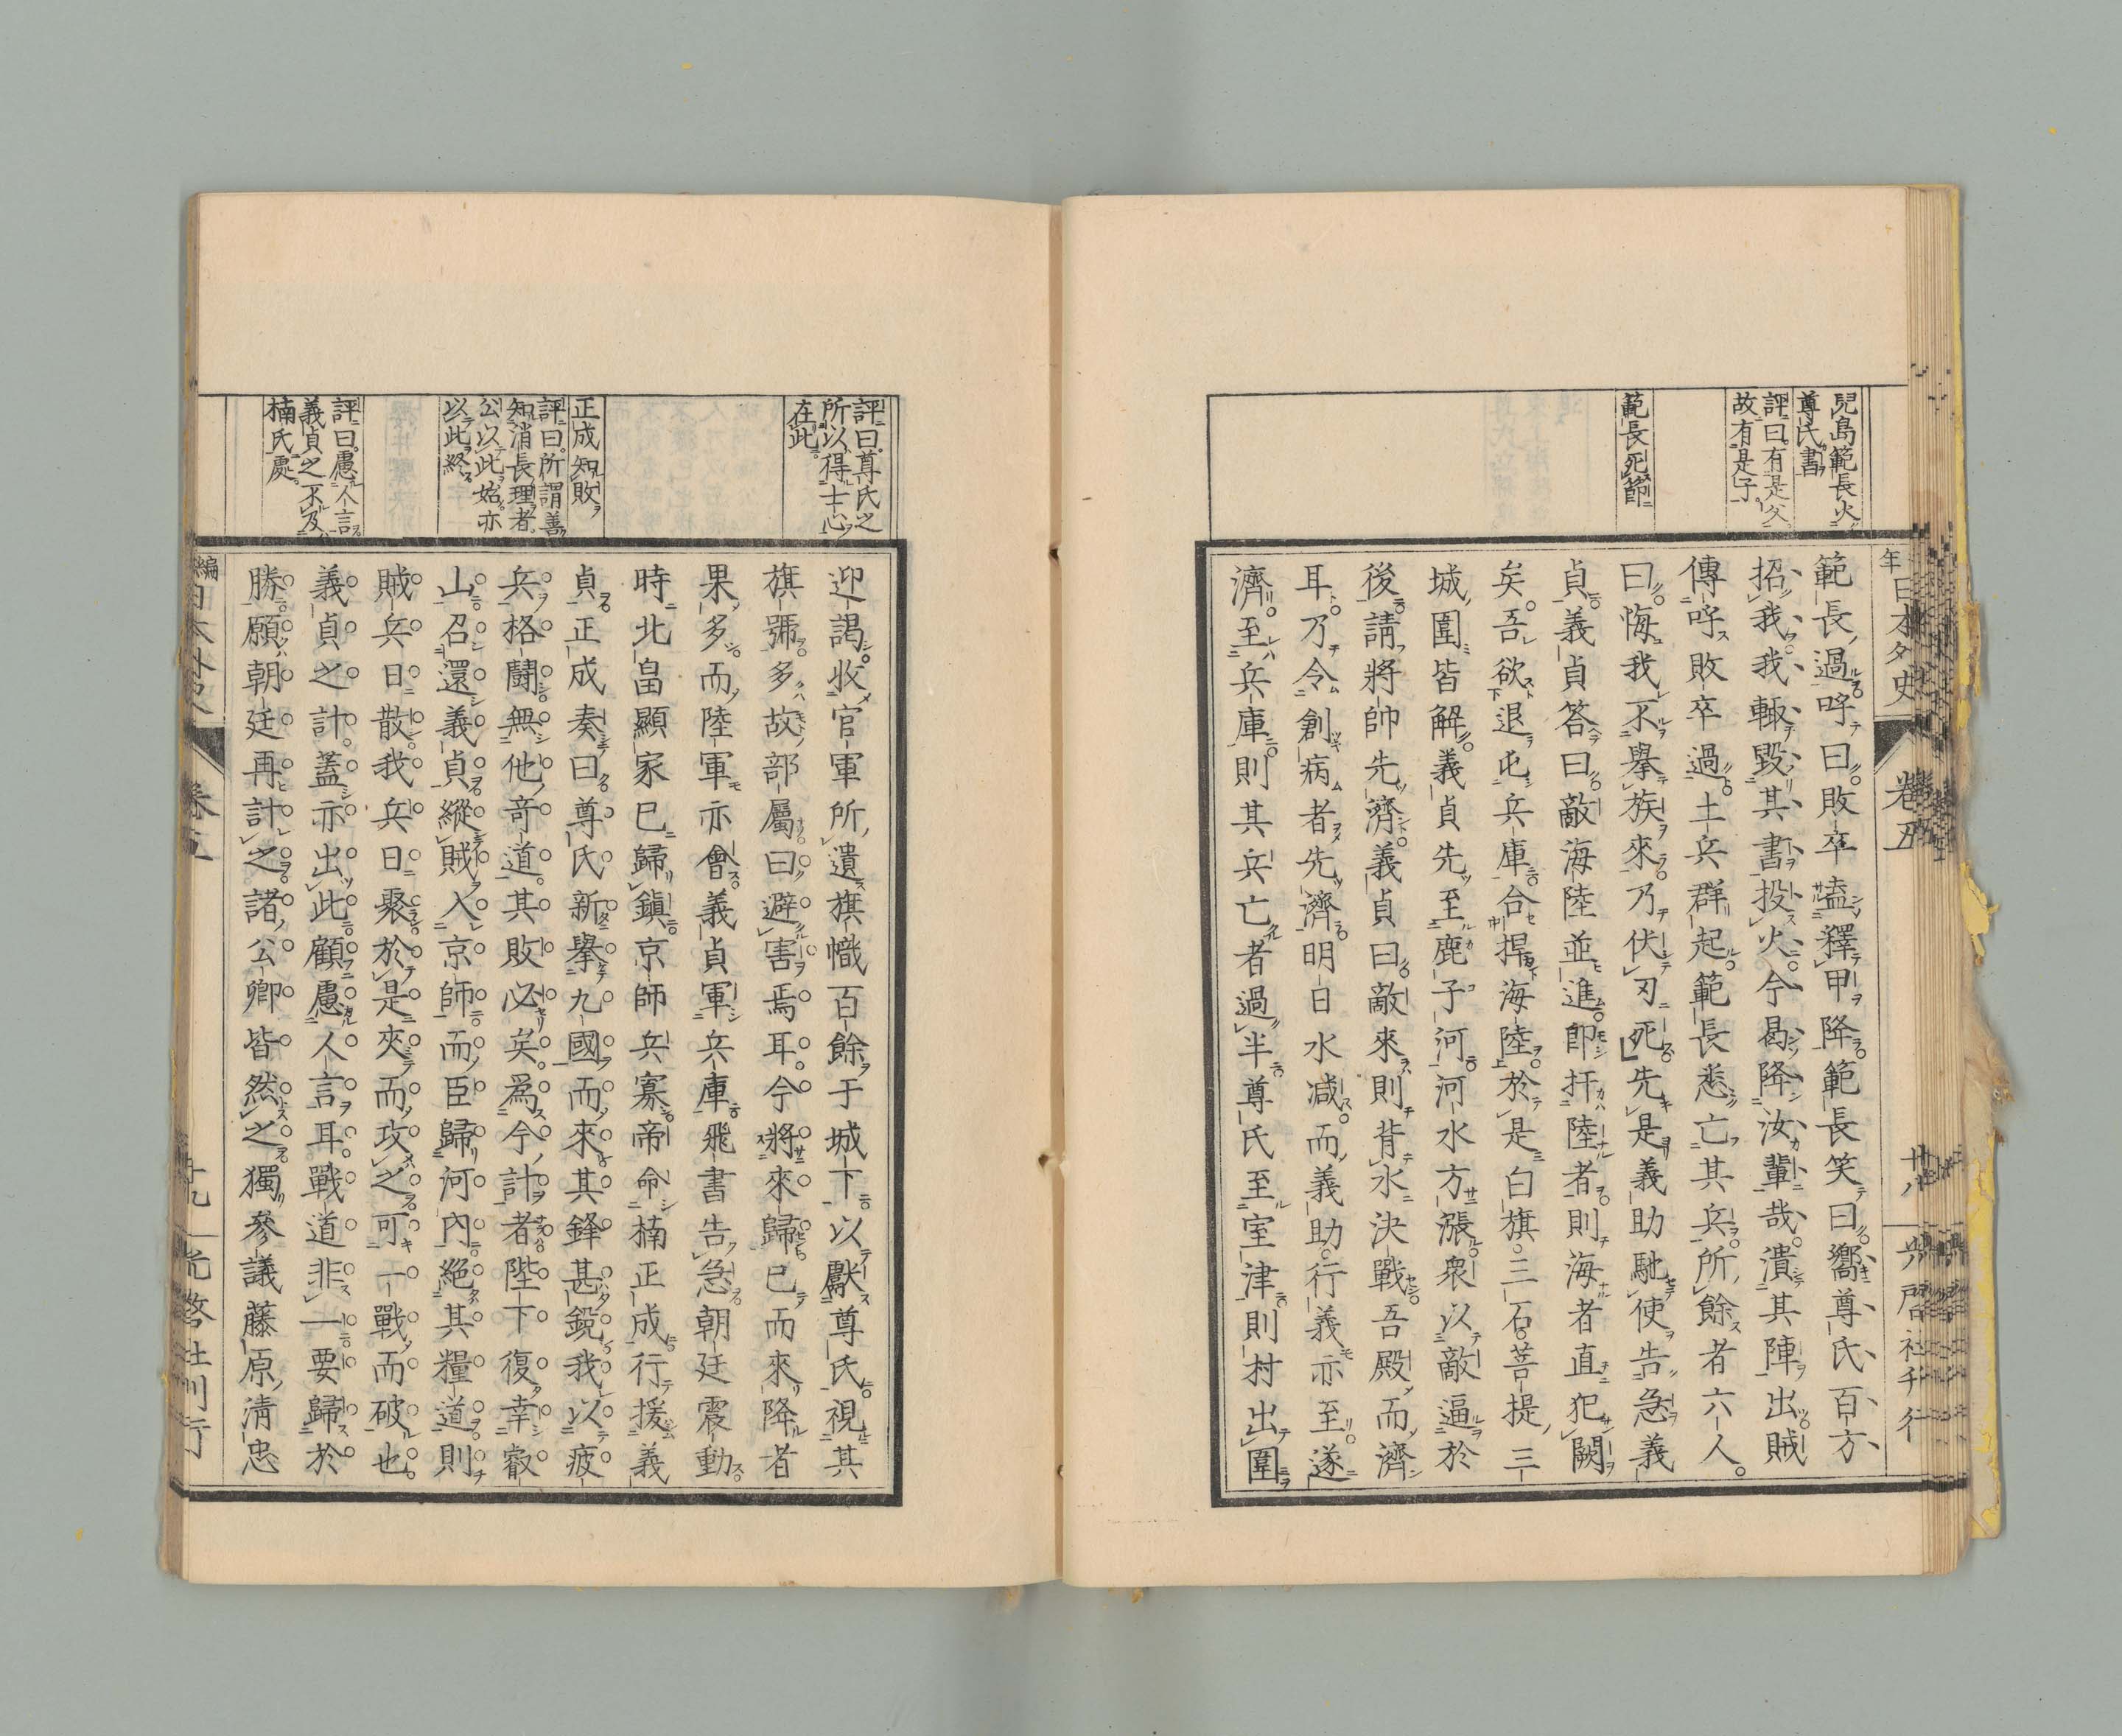 兒島範長火
尊氏書
評曰有是父
故有是子
範長死節
範長過呼曰敗卒盍釋甲降範長笑曰嚮尊氏百方
招我我輙毀其書投火今曷降汝輩哉潰其陣出賊
傳呼敗卒過土兵群起範長悉亡其兵所餘者六人
曰悔我不擧族來乃伏刃死先是義助馳使告急義
貞義貞答曰敵海陸並進卽扞陸者則海者直犯闕
矣吾欲退屯兵庫合捍海陸於是白旗三石菩提三
城圍皆解義貞先至鹿子河河水方漲衆以敵逼於
後請將帥先濟義貞曰敵來則背水決戰吾殿而濟
耳乃令創病者先濟明日水減而義助行義亦至遂
濟至兵庫則其兵亡者過半尊氏至室津則村出圍
年
日本外史
卷五
廿八
評曰尊氏之
所以得士心
在此
正成知敗
評曰所謂善
知消長理者
公以此始亦
以此終
評曰慮人言
義貞之不及
楠氏處
迎謁收官軍所遺旗幟百餘于城下以獻尊氏視其
旗號多故部屬曰避害焉耳今將來歸已而來降者
果多而陸軍亦會義貞軍兵庫飛書告急朝廷震動
時北畠顯家已歸鎭京師兵寡帝命楠正成行援義
貞正成奏曰尊氏新擧九國而來其鋒甚銳我以疲
兵格鬪無他竒道其敗必矣爲今計者陛下復幸叡
山召還義貞縱賊入京師而臣歸河內絕其糧道則
賊兵日散我兵日聚於是夾而攻之可一戰而破也
義貞之計蓋亦出此顧慮人言耳戰道非一要歸於
勝願朝廷再計之諸公卿皆然之獨參議藤原淸忠
編
日本外史
卷五
廿九
光啓社刊行